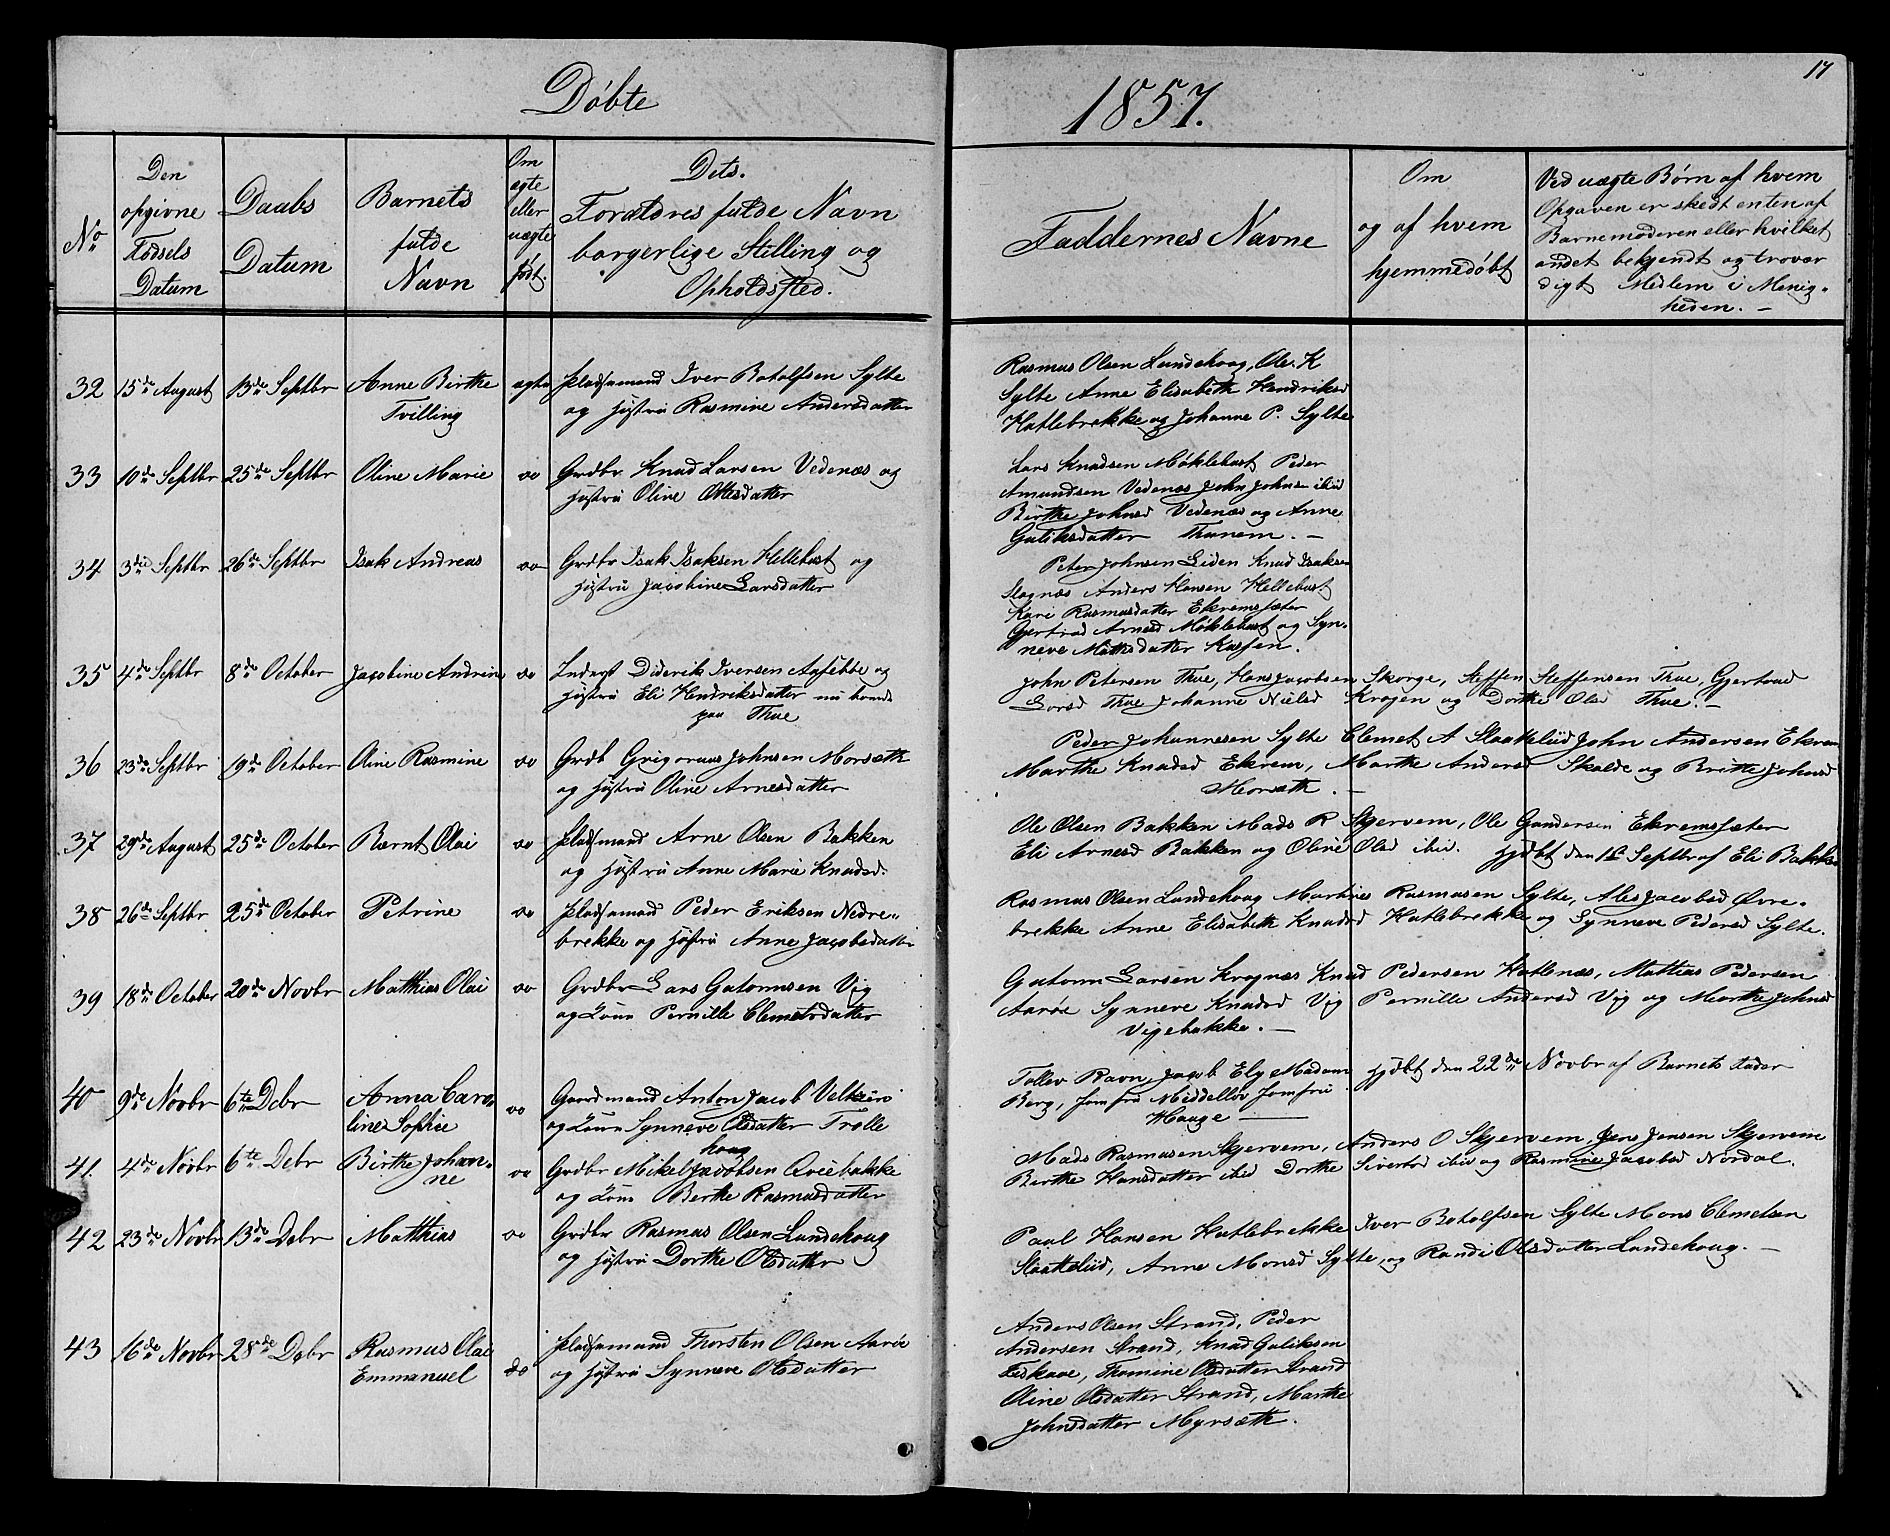 Døbte
1857.
17
No
Den opgivne Fødsels Datum
Daabs Datum
Barnets fulde Navn
Om ægte eller uægte født.
Dets.
Forældres fulde Navn
borgerlige Stilling og
Opholdssted.
Faddernes Navne
Om
og af hvem
hjemmedøbt
Ved uægte Børn af hvem
Opgaven er skedt enten af
Barnemoderen eller hvilket
andet bekjendt og trovær
digt Medlem i Menig-
heden. -
32 15de August 13de Septbr Anne Birthe ægte Pladsmand Iver Botolfsen Sylte
Tvilling og hustru Rasmine Andersdatter
Rasmus Olsen Lundehoug, Ole K
Sylte Anne Elisabeth Hendriksd
Hatlebrekke og Johanne P. Sylte
33 10de Septbr 25de Septbr Oline Marie do Grdbr Knud Larsen Vedenæs og
hustru Oline Ottesdatter
Lars Knudsen Møklebust Peder
Amundsen Vedenæs John Johnsen ibid
Birthe Johnsd Vedenæs og Anne
Guliksdatter Thunem. -
34 3die Septbr 26de Septbr Isak Andreas do Grdbr Isak Isaksen Hellebust og
hustru Jacobine Larsdatter
Peter Johnsen Liden Knud Isaksen
Slognæs Anders Hansen Hellebust
Kari Rasmusdatter Ekremssæter
Gjertrud Arnesd Møklebust og Syn-
neve Mathsdatter
35 4de Septbr 8de October Jacobine Andrine do Inderst Diderik Iversen og
hustru Eli Hendriksdatter nu
paa Thue
John Petersen Thue, Hans Jacobsen Skorge, Steffen Steffensen Thue, Gjertrud
Larsd Thue Johanne Nielsd Krogen og Dorthe Olsd Thue. -
36 23de Septbr 19de October Oline Rasmine do Grdb Grigorius Johnsen Morsæth
og hustru Oline Arnesdatter
Peder Johannesen Sylte Clemet A Slaatteliid John Andersen Ekrem
Marthe Knudsd Ekrem, Marthe Andersd Skolde og Brithe Johnsd
Morsæth. -
37 29de August 25de October Bærnt Olai do Pladsmand Arne Olsen Bakken
og hustru Anne Marie Knudsd.
Ole Olsen Bakken Mads R Skjervem, Ole Gundersen Ekremssæter
Eli Arnesd Bakken og Oline Olsd ibid. hjdbt den Septbr af Eli Bakken
38 26de Septbr 25de October Petrine do Pladsmand Peder Eriksen Nedre-
brekke og hustru Anne Jacobsdatter
Rasmus Olsen Lundehoug Martines Rasmusen Sylte, Ales Jacobsd Øvre-
brekke Anne Elisabeth Knudsd Hatlebrekke og Synneve Pedersd Sylte.
39 18de October 20de Novbr Matthias Olai do Grdbr Lars Gutormsen Vig
og Kone Pernille Clemetsdatter
Gutorm Larsen Krognæs Knud Pedersen Hatlenæs, Mattias Pedersen
Aarøe Synneve Knudsd Vig Pernille Andersd Vig og Marthe Johnsd
Vigebakke. -
40 9de Novbr 6te Debr Anna Caro- do Gaardmand Anton Jacob Veltzin
line Sophie og Kone Synneve Olsdatter Trolle
houg
Tollev Ravn, Jacob Ely Madam hjdbt den 22de Novbr af Barnets Fader
Berg, Jomfru Middelfør Jomfru
Hauge
41. 4de Novbr 6te Debr Birthe Johan- do Grdbr Mikel Jacobsen Qviebakke
ne og Kone Berthe Rasmusdatter
Mads Rasmusen Skjervem, Anders O Skjervem, Jens Jensen Skjervem
Berthe Hansdatter ibid Dorthe Sivertsd ibid og Rasmine Jacobsd Nørdal.
42 23de Novbr 13de Debr Matthias do Grdbr Rasmus Olsen Lundehoug
og hustru Dorthe Olsdatter
Paul Hansen Hatlebrekke Iver Botolfsen Sylte Mons Clemetsen
Slaatteliid, Anne Monsd Sylte og Randi Olsdatter Lundehoug. -
43 16de Novbr 28de Debr Rasmus Olai do Pladsmand Thorsten Olsen Aarøe
Emmanuel og hustru Synneve Olsdatter
Anders Olsen Strand, Peder
Andersen Strand, Knud Guliksen
Thomine Olsdatter Strand
Oline Olsdatter Strand, Marthe
Johnsdatter Myrsæth.